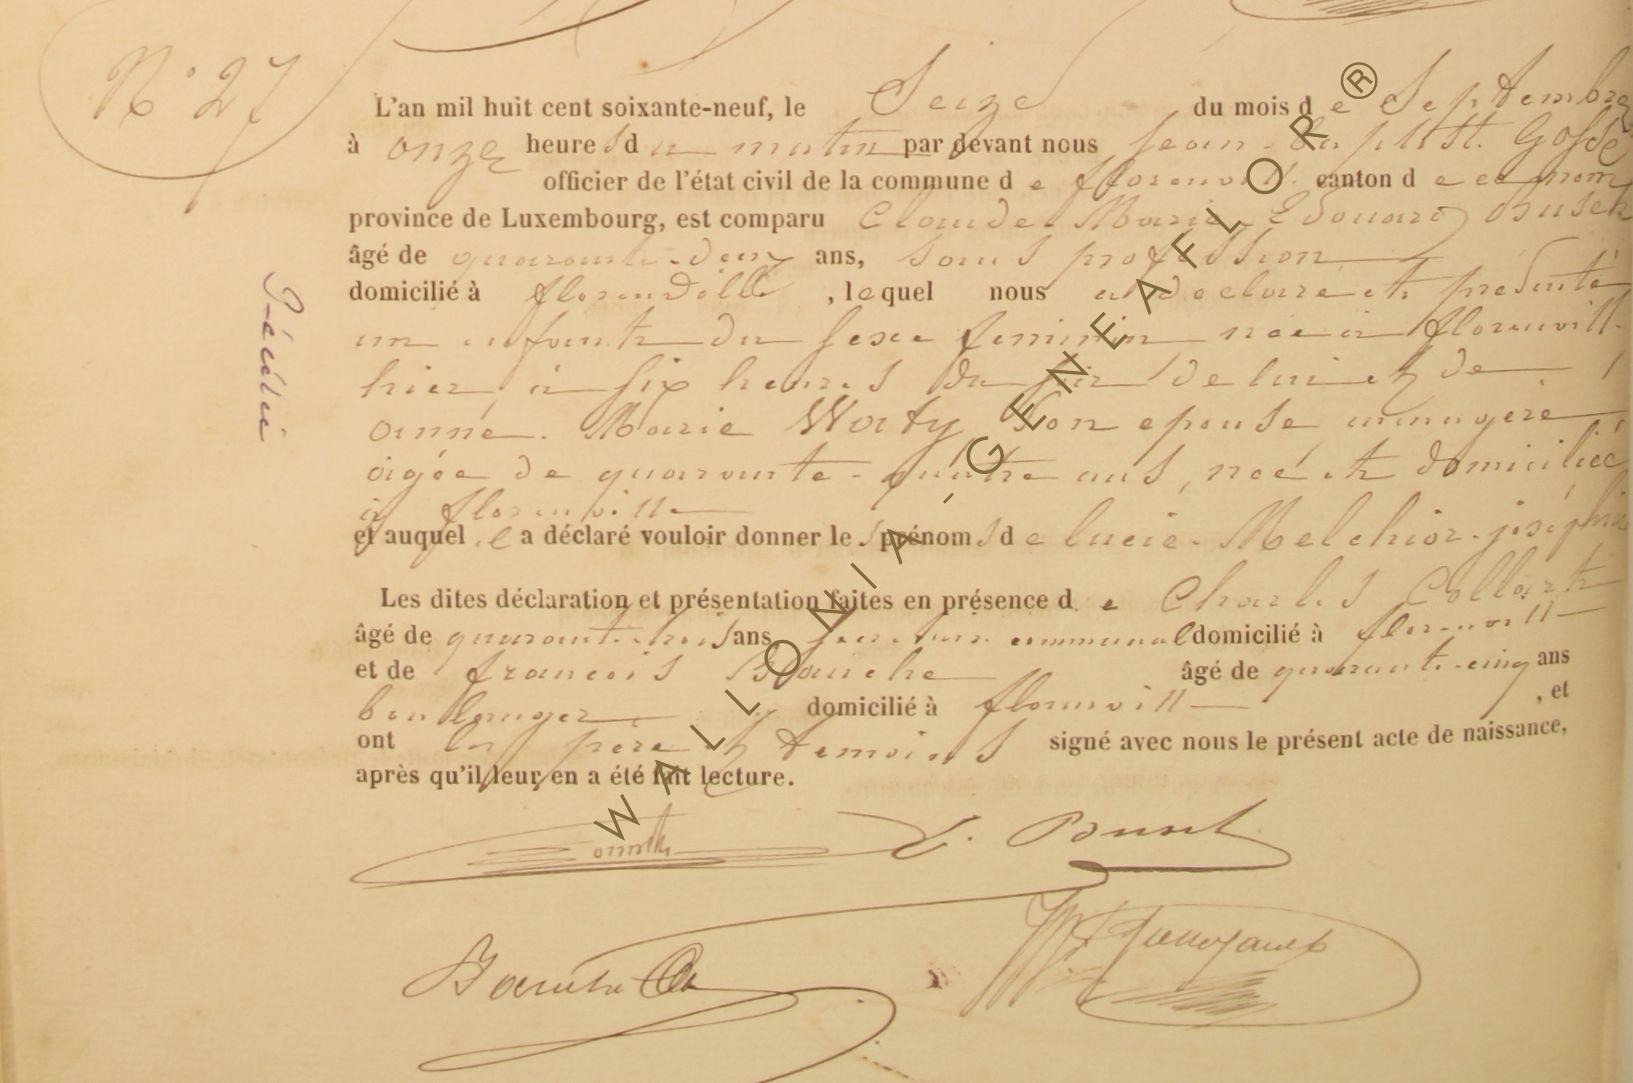 N° 27
L'an mil huit cent soixante-neuf, le Seize du mois de Septembre
à onze heures du matin par devant nous jean-baptist. Gofsé
officier de l'état civil de la commune de florenvill. canton de ce nom
province de Luxembourg, est comparu Claude-Marie-Edouard Busch
âgé de quarante-deux ans, sans profession
domicilié à florenville, lequel nous a declaré et presenté
un enfant du sexe feminin née à florenvill.
hier à six heures du soir de lui et de
anne-Marie Waty son epouse menagère
agée de quarante-quatre ans, née et domiciliée
à florenville
et auquel il a déclaré vouloir donner les prénoms de lucie-Melchior-joséphine
Les dites déclaration et présentation faites en présence de Charles Collart
âgé de quarante-trois ans secretaire communal domicilié à florenvill
et de francois Blanche âgé de quarante-cinq ans
boulanger domicilié à florenvill, et
ont les père et temoins signé avec nous le présent acte de naissance,
après qu'il leur en a été fait lecture.
WALLONIA-GENEAFLOR®